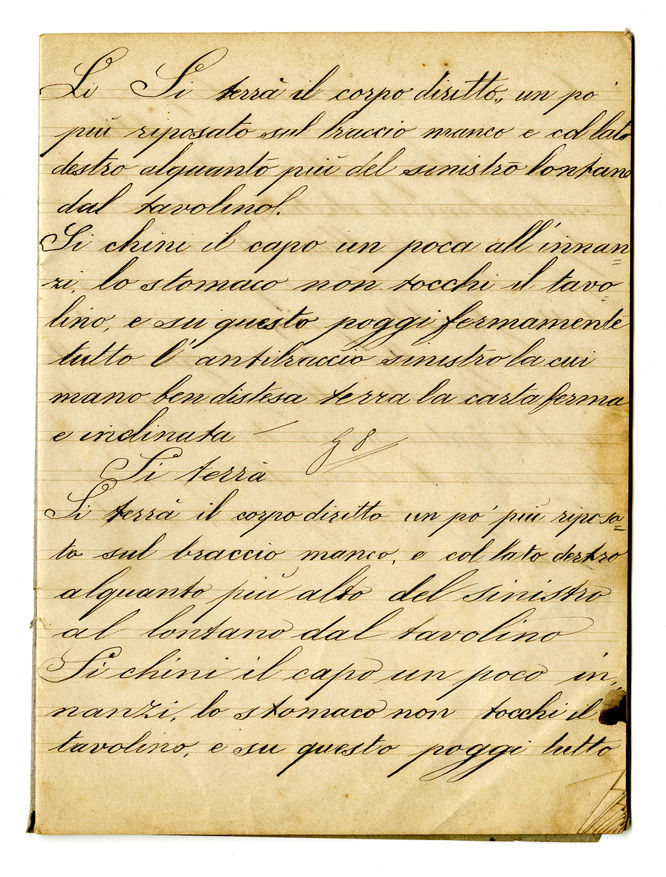 Si Si terrà il corpo diritto, un po'
più riposato sul braccio manco e col lato
destro alquanto più del sinistro lontano
dal tavolino.
Si chini il capo un poca all'innan=
zi, lo stomaco non tocchi il tavo=
lino, e su questo poggi fermamente
tutto l'antibraccio sinistro la cui
mano ben distesa terra la carta ferma
e inclinata
Si terrà
Si terrà il corpo diritto un po' più riposa=
to sul braccio manco, e col lato dertro
alquanto più alto del sinistro
al lontano dal tavolino
Si chini il capo un poco in,
nanzi, lo stomaco non tocchi il
tavolino, e su questo poggi tutto